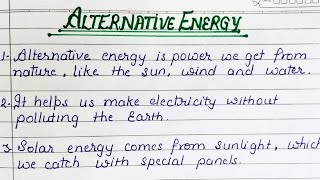 ALTERNATIVE ENERGY
1- Alternative energy is power we get from
nature, like the sun, wind and water.
2- It helps us make electricity without
polluting the Earth.
3- Solar energy comes from sunlight, which
we catch with special panels.